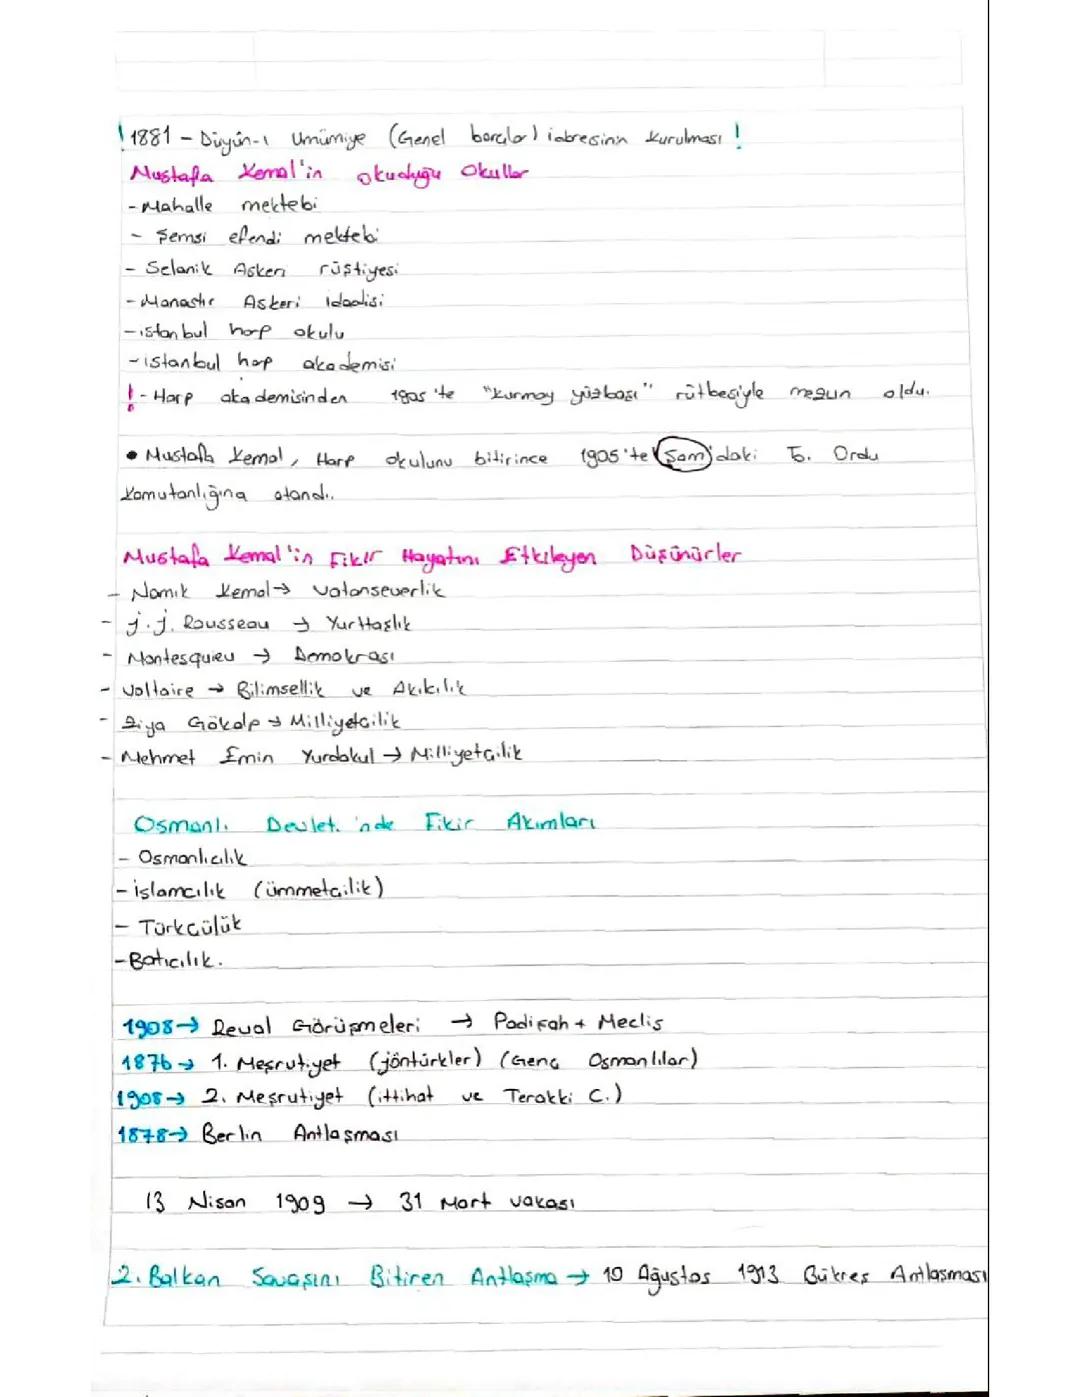 ! 1881 - Düyûn-ı Umûmiye (Genel borçlar) idaresinin kurulması !
Mustafa Kemal'in okuduğu Okullar
- Mahalle mektebi
- Şemsi efendi mektebi
- Selanik Askeri rüştiyesi
- Manastır Askeri idadisi
- istanbul harp okulu
- istanbul harp akademisi
! - Harp akademisinden 1905'te "kurmay yüzbaşı" rütbesiyle mezun oldu.
• Mustafa Kemal, Harp okulunu bitirince 1905'te Şam'daki 5. Ordu
Komutanlığına atandı.
Mustafa Kemal'in Fikir Hayatını Etkileyen Düşünürler
- Namık Kemal → vatanseverlik
- j.j. Rousseau → Yurttaşlık
- Montesquieu → Demokrasi
- Voltaire → Bilimsellik ve Akılcılık
- Ziya Gökalp → Milliyetçilik
- Mehmet Emin Yurdakul → Milliyetçilik
Osmanlı Devleti'nde Fikir Akımları
- Osmanlıcılık
- islamcılık (ümmetçilik)
- Türkçülük
- Batıcılık.
1908 → Reval Görüşmeleri → Padişah + Meclis
1876 → 1. Meşrutiyet (jöntürkler) (Genç Osmanlılar)
1908 → 2. Meşrutiyet (ittihat ve Terakki C.)
1878 → Berlin Antlaşması
13 Nisan 1909 → 31 Mart vakası
2. Balkan Savaşını Bitiren Antlaşma → 10 Ağustos 1913 Bükreş Antlaşması